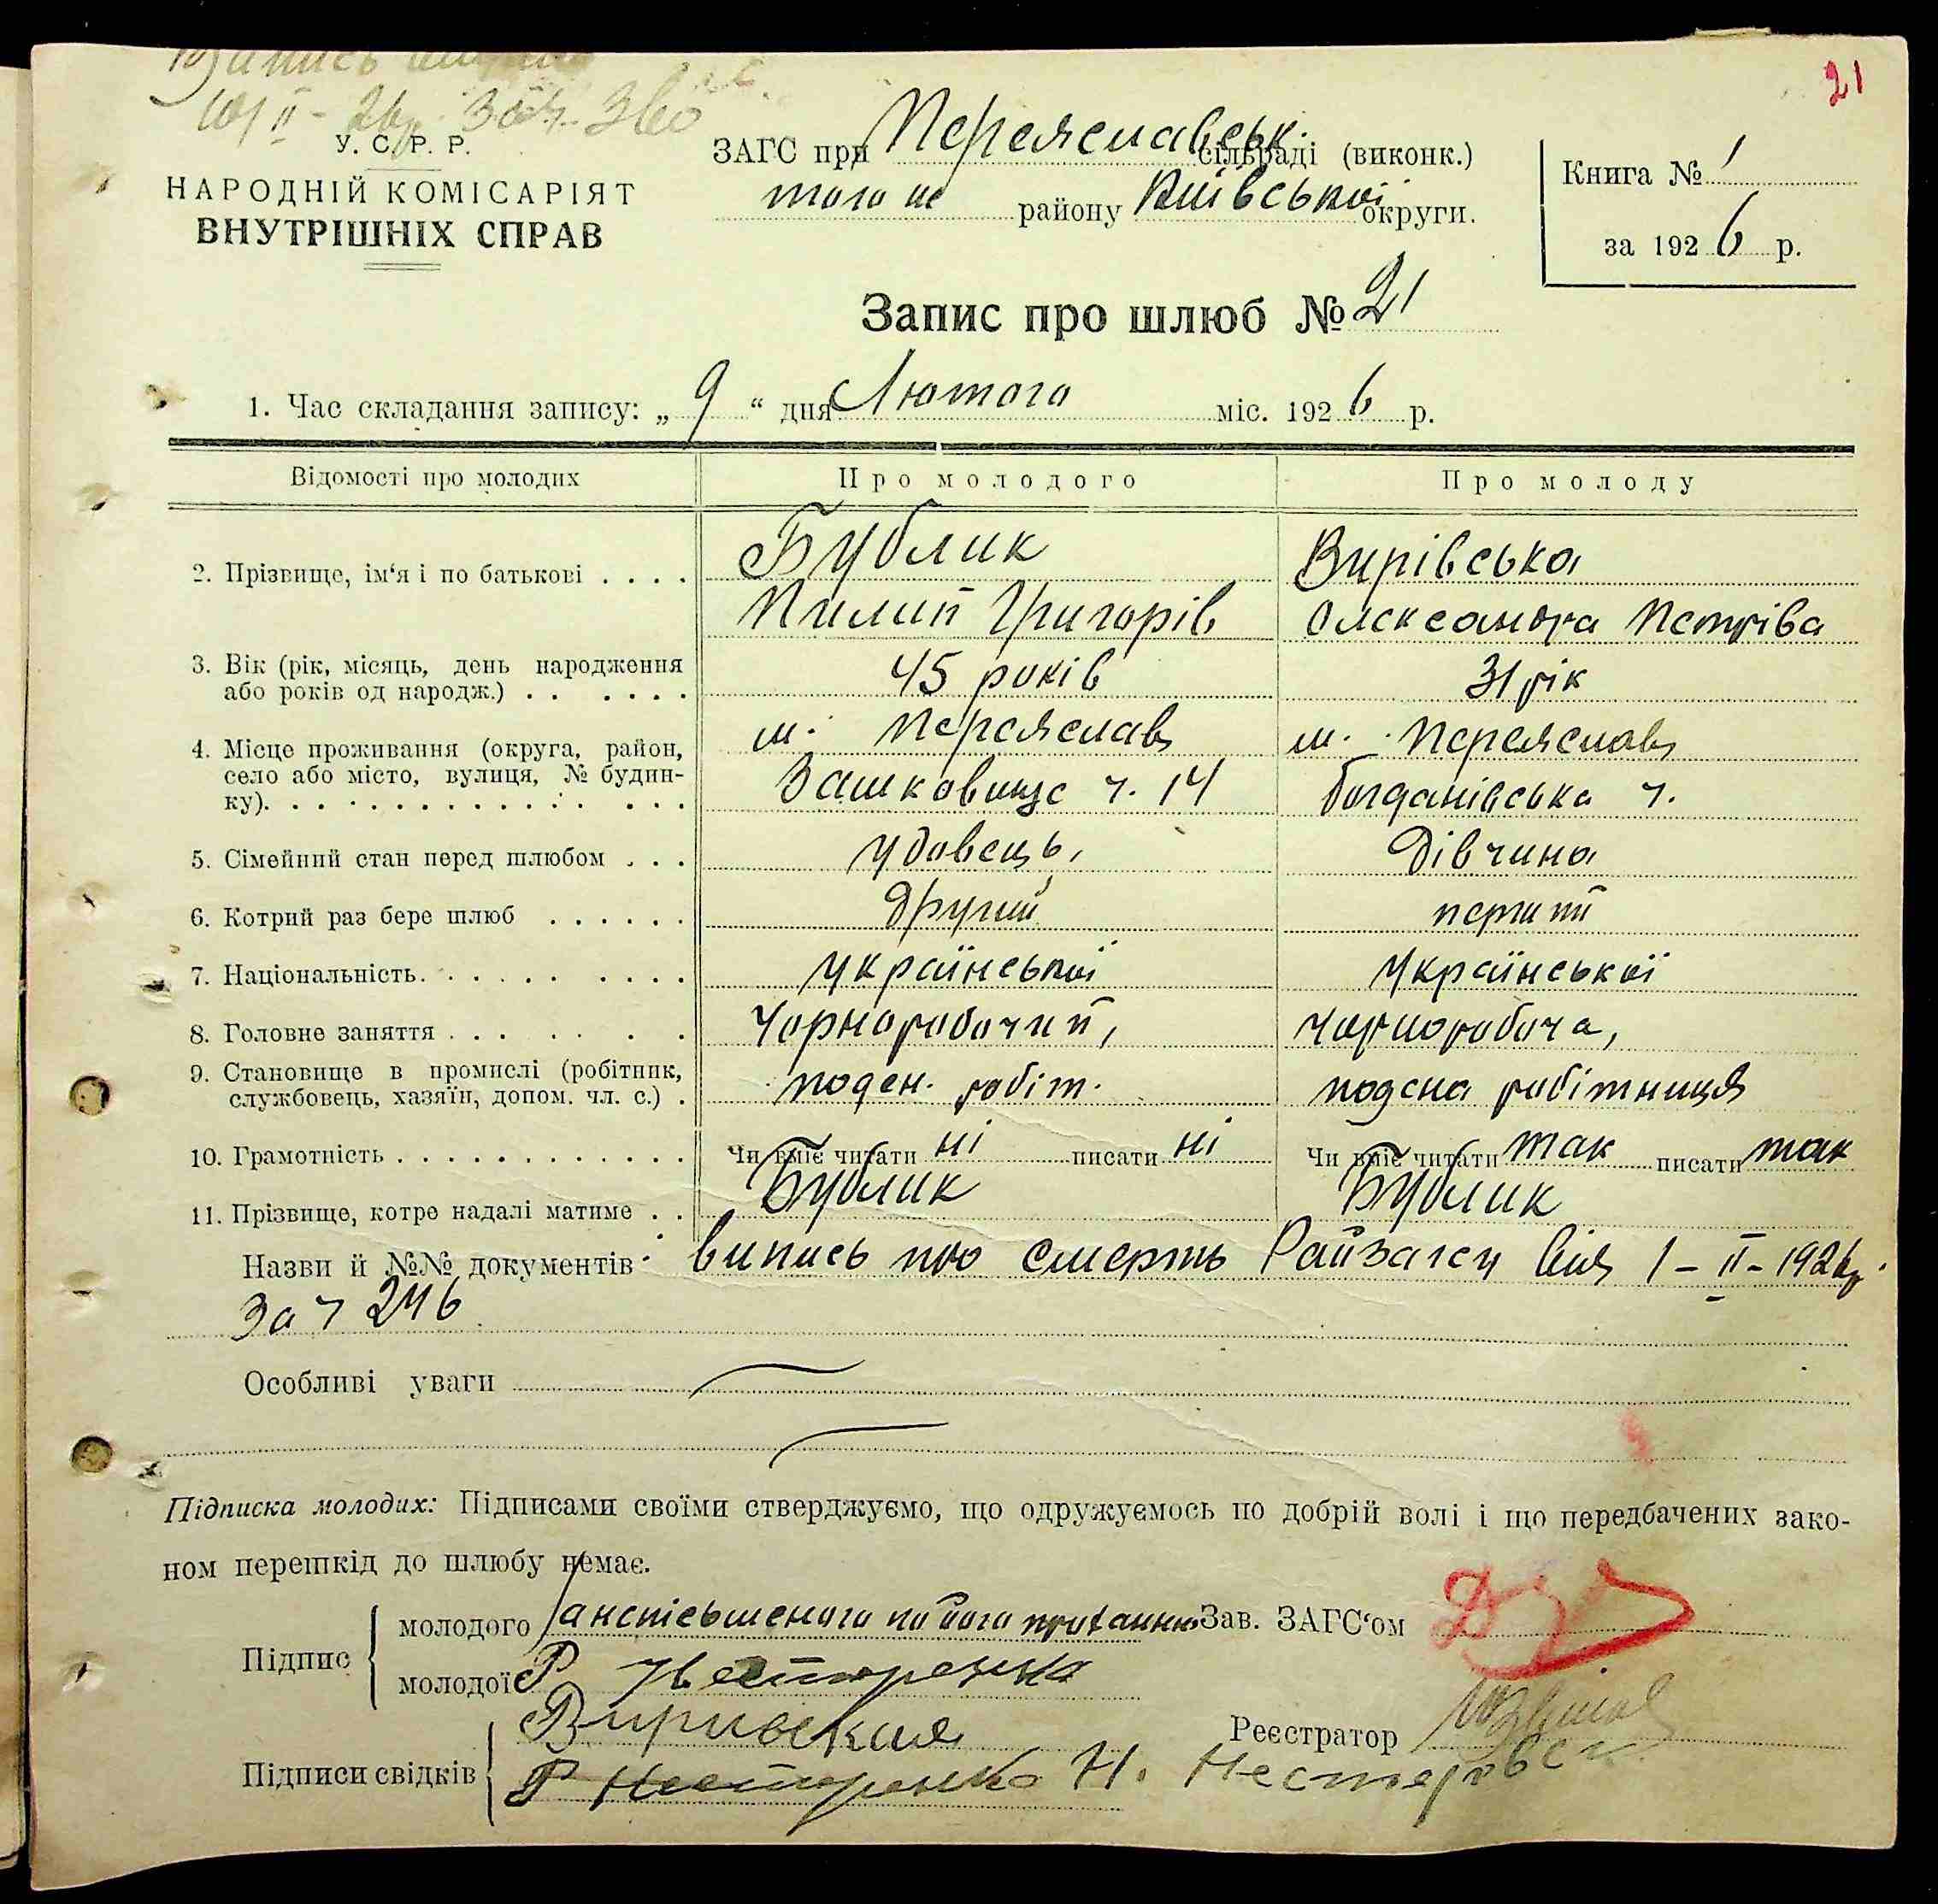 21
Запись
10/II-26р. за ч. 360
У. С. Р. Р.
НАРОДНІЙ КОМІСАРІЯТ
ВНУТРІШНІХ СПРАВ
ЗАГС при Переяславськ. сільраді (виконк.)
того ж району Київської округи.
Книга № 1
за 1926 р.
Запис про шлюб № 21
1. Час складання запису: „ 9 “ дня Лютого міс. 1926 р.
Відомості про молодих Про молодого Про молоду
2. Прізвище, ім‘я і по батькові . . . . Бублик Вирівська
Пилип Григорів Олександра Петрівa
3. Вік (рік, місяць, день народження
або років од народж.) . . . . . . 45 років 31 рік
4. Місце проживання (округа, район, м. Переяслав м. Переяслав
село або місто, вулиця, № будин-
ку). . . . . . . . . . . . . . . . Зашковище ч. 14 Богданівська ч.
5. Сімейний стан перед шлюбом . . . удовець, дівчина
6. Котрий раз бере шлюб . . . . . . другий перший
7. Національність. . . . . . . . . . української української
8. Головне заняття . . . . . . . Чорноробочий, чорноробоча,
9. Становище в промислі (робітник,
службовець, хазяїн, допом. чл. с.) . поден. робіт. подена робітниця
10. Грамотність . . . . . . . . . . . . . Чи вміє читати ні писати ні Чи вміє читати так писати так
11. Прізвище, котре надалі матиме . . Бублик Бублик
Назви й №№ документів: випись про смерть Райзагсу від 1-II-1926р.
за ч 246
Особливі уваги
Підписка молодих: Підписами своїми стверджуємо, що одружуємось по добрій волі і що передбачених зако-
ном перешкід до шлюбу немає.
Підпис молодого по його проханню Зав. ЗАГС‘ом
молодої Р Нестеренко
Виривская
Реєстратор
Підписи свідків Р Нестеренко Н.